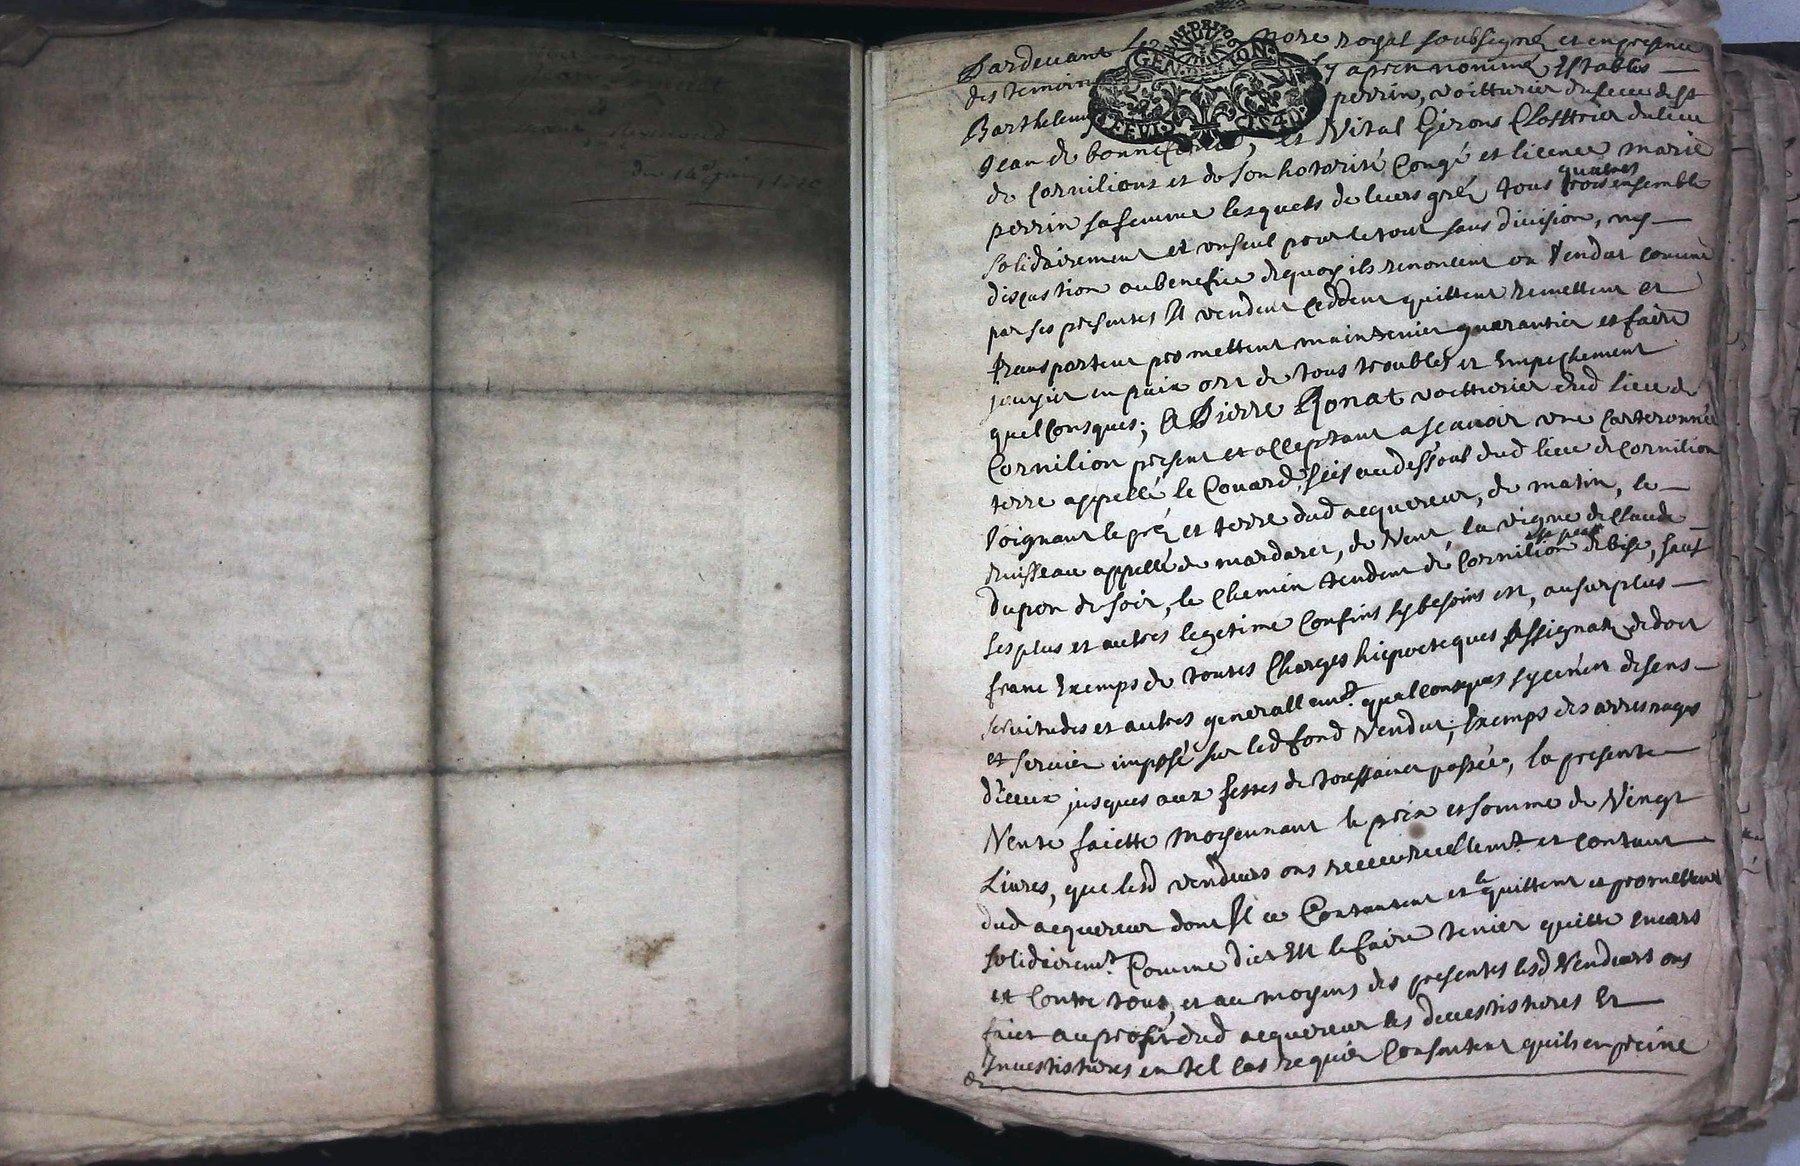 du 14e juin, 1710
GEN. DE LION.
Pardevant le nore royal soubsigné et en presence
des temoins cy apres nommé Establis
Barthelemy perrin, voitturier du lieu de St
Jean de bonnefond, et Vital Girons Clottrier du lieu
de Cornilions et de son hotorité Congé et licence marie
perrin sa femme lesquels de leurs gré tous quatres ensemble
solidairement et un seul pour le tout sans division, ny
discustion au benefice dequoy ils renoncent on Vendut comme
par ses presentes Il vendent Ceddent quittent Remettent et
transportent promettent maintenier guarantier et faire
jouyier en paix ort de tous troubles et Empechement
quelConsques; A Pierre Ronat voitturier dud lieu de
Cornilion present et acceptant ascavoir une Carteronnée
terre appellé le Couard, scis au dessous dud lieu de Cornilion
Joignant le pré et terre dud acquereur, de matin, le
Ruisseau appellé de mardaret, de Vent, la vigne de Claude
Dupon de soir, le Chemin tendent de Cornilion de bise, sauf
ses plus et autres legitime Confins sy besoins est, au surplus
franc Exemps de toutes Charges hiepoteques Assignatz de dot
servitudes et autres generallemt. quelconsques sycenest de sens
et servier imposé sur led fond Vendut; Exemps des arresrages
d'iceux jusques aux festes de toussainct passée, la presente
Vente faiette moyennant le prix et somme de Vingt
Livres, que lesd vendeurs ons receu reellemt. et contant
dud acquereur dont Il ce Contentent et le quittent et promettent
solidairemt. Comme dict Est le faire tenier quitte envers
et Contre tous, et au moyens des presentes lesd Vendeurs ons
faict au profit dud acquereur les devestistures Et
Investistures en tel cas requier Consentent quils en prene